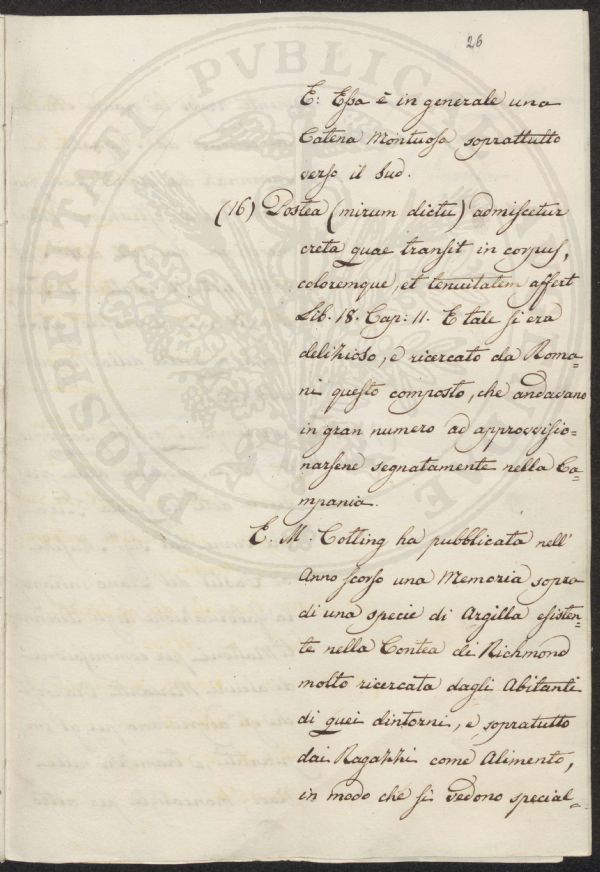 26
E: Essa è in generale una
Catena Montuosa soprattutto
verso il Sud.
(16) Postea (mirum dictu) admiscetur
creta quae transit in corpus,
coloremque, et tenuitatem affert
Lib. 18. Cap: 11. E tale si era
delizioso, e ricercato da Roma=
ni questo composto, che andavano
in gran numero ad approvvisio=
narsene segnatamente nella Ca=
mpania.
E. M. Cotting ha pubblicata nell'
Anno scorso una Memoria sopra
di una specie di Argilla esisten=
te nella Contea di Richmond
molto ricercata dagli Abitanti
di quei dintorni, e sopratutto
dai Ragazzi come Alimento,
in modo che si vedono special=
PROSPERITATI PVBLICAE